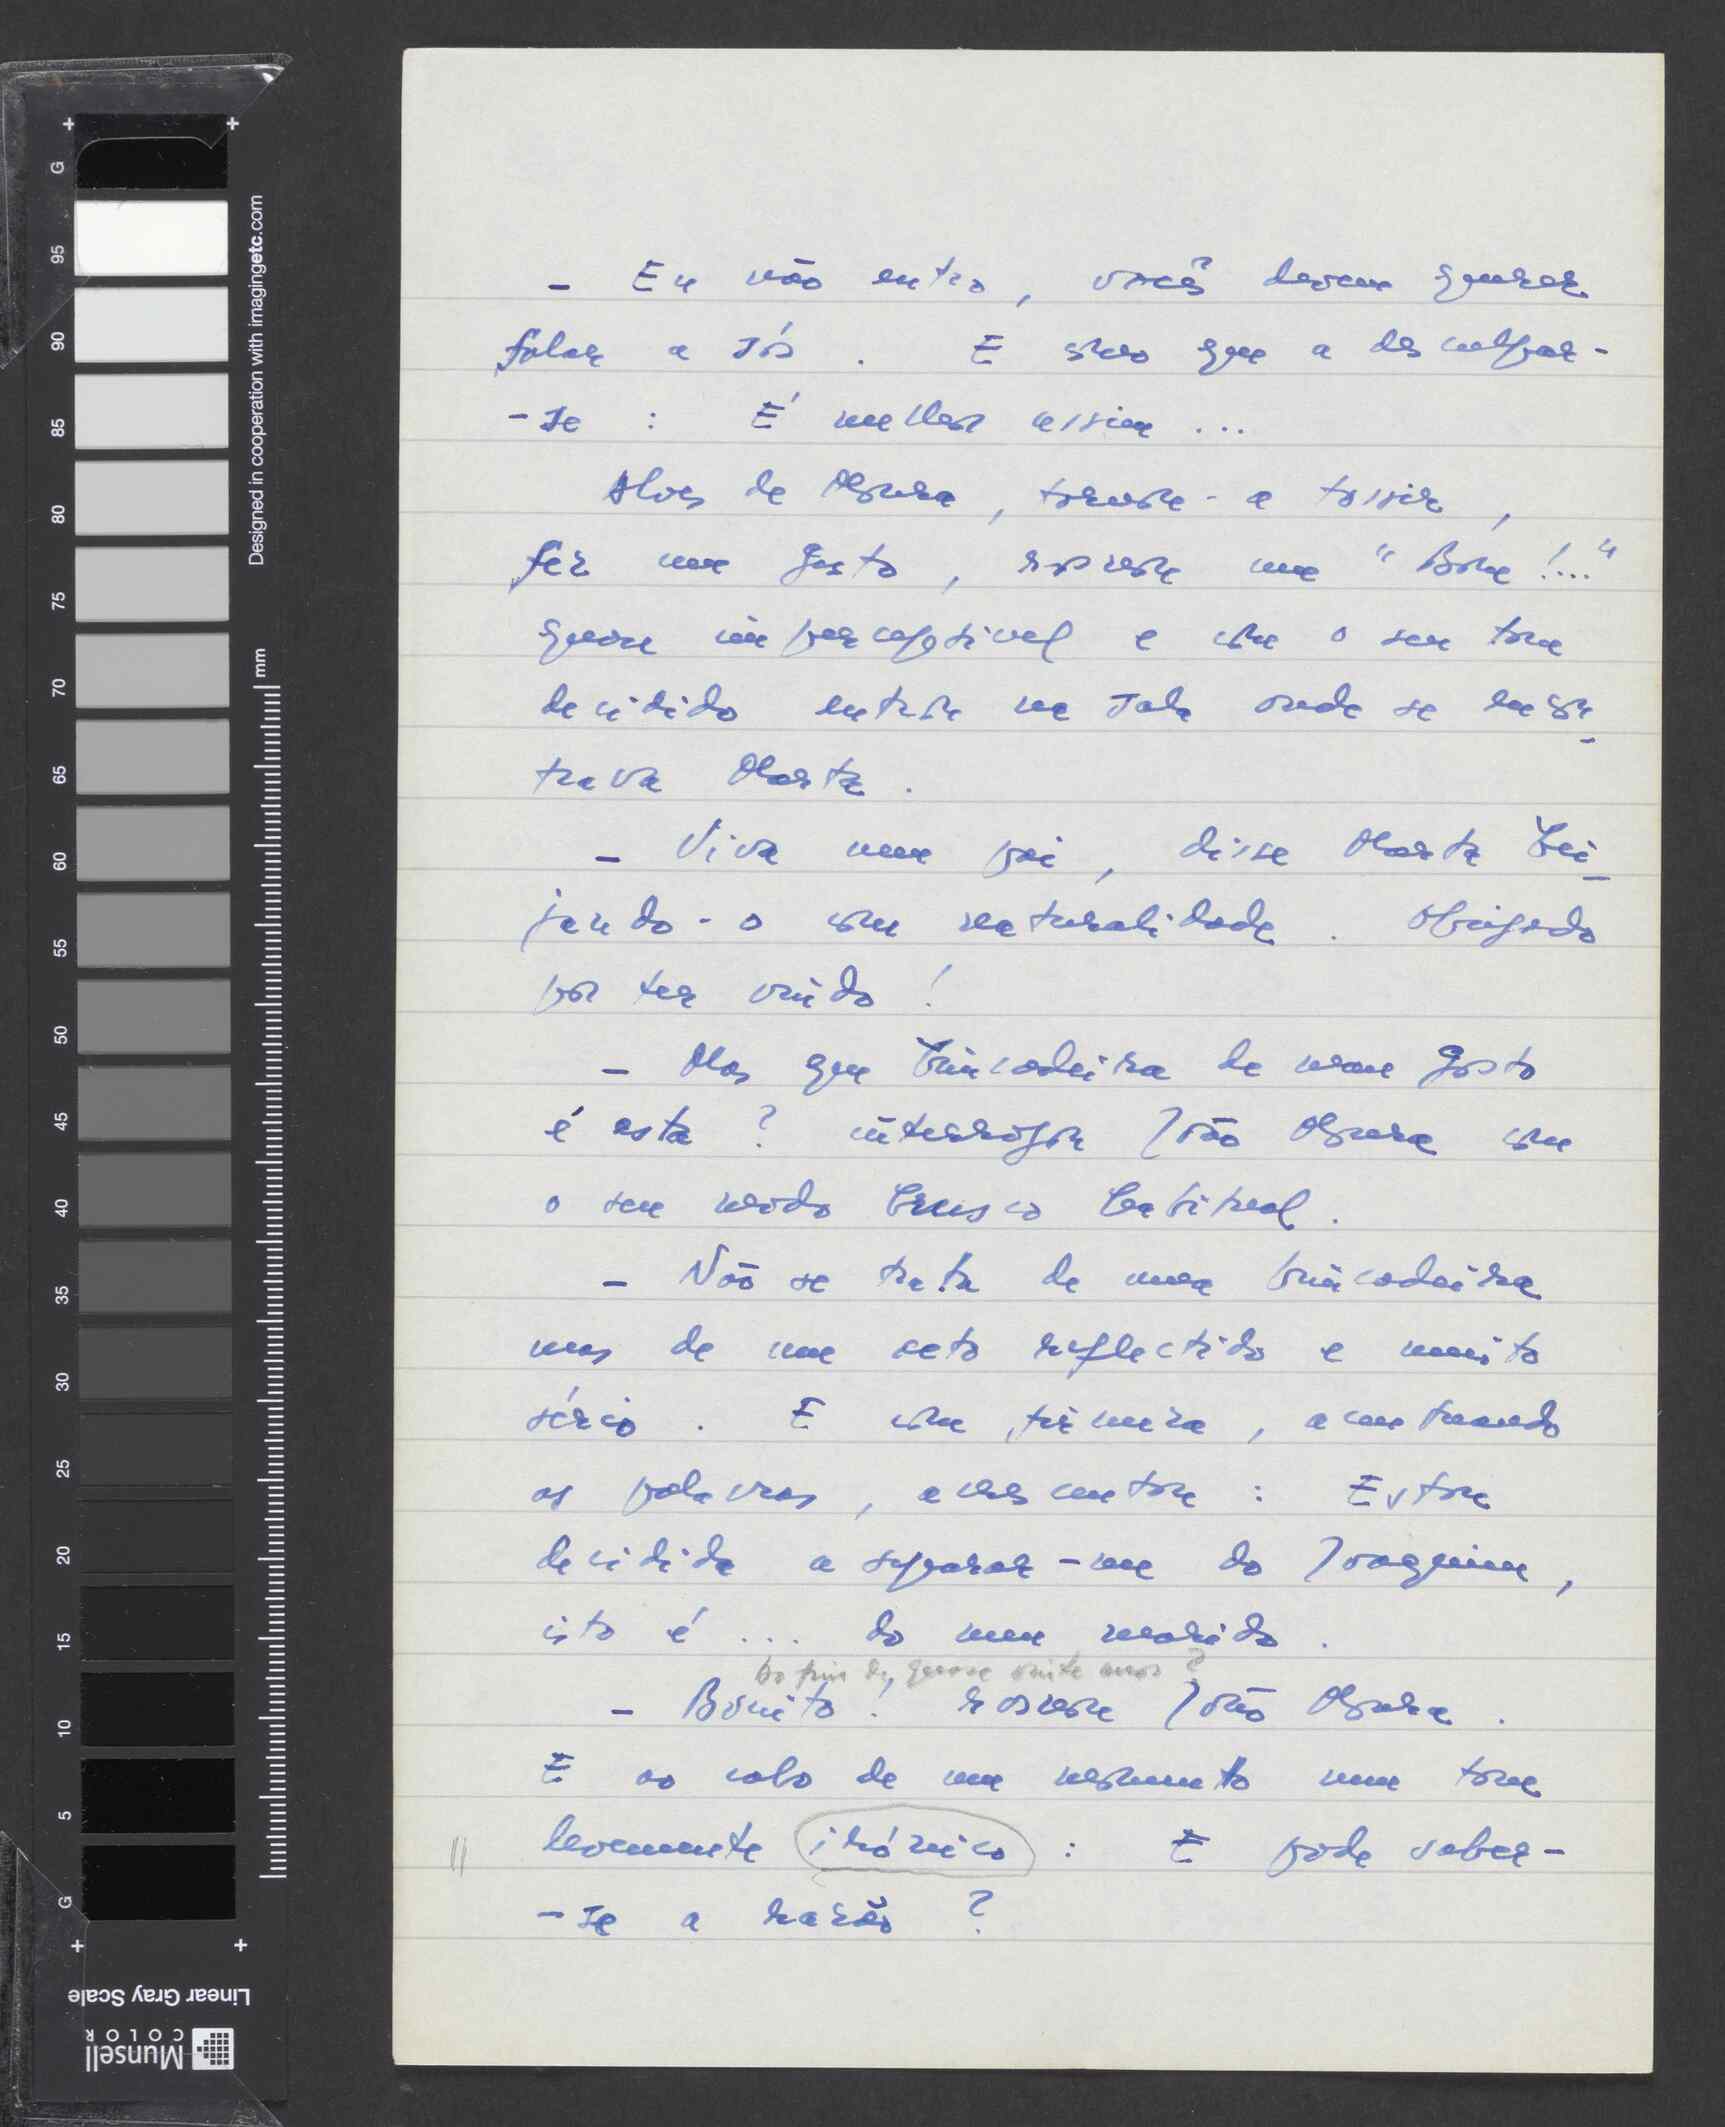 - Eu não entro, vocês devem querer
falar a sós. E como que a desculpar-
-se: É melhor assim...
Alves de Moura, tornou-a tossir,
fez um gesto, rosnou um "Bom!..."
quase imperceptível e com o seu tom
decidido entrou na sala onde se encon-
trava Marta.
- Viva meu pai, disse Marta bei-
jando-o com naturalidade. Obrigado
por ter vindo!
- Mas que brincadeira de mau gosto
é esta? interrogou João Moura com
o seu modo brusco habitual.
- Não se trata de uma brincadeira
mas de um acto reflectido e muito
sério. E com firmeza, acentuando
as palavras, acrescentou: Estou
decidida a separar-me do Joaquim,
isto é... do meu marido.
Ao fim de quase vinte anos?
- Bonito! rosnou João Moura.
E ao cabo de um momento num tom
levemente irónico: E pode saber-
-se a razão?
Designed in cooperation with imagingetc.com
mm
G
95
90
85
80
75
70
65
60
55
50
45
40
35
30
25
20
15
10
5
G
Linear Gray Scale
Munsell
COLOR